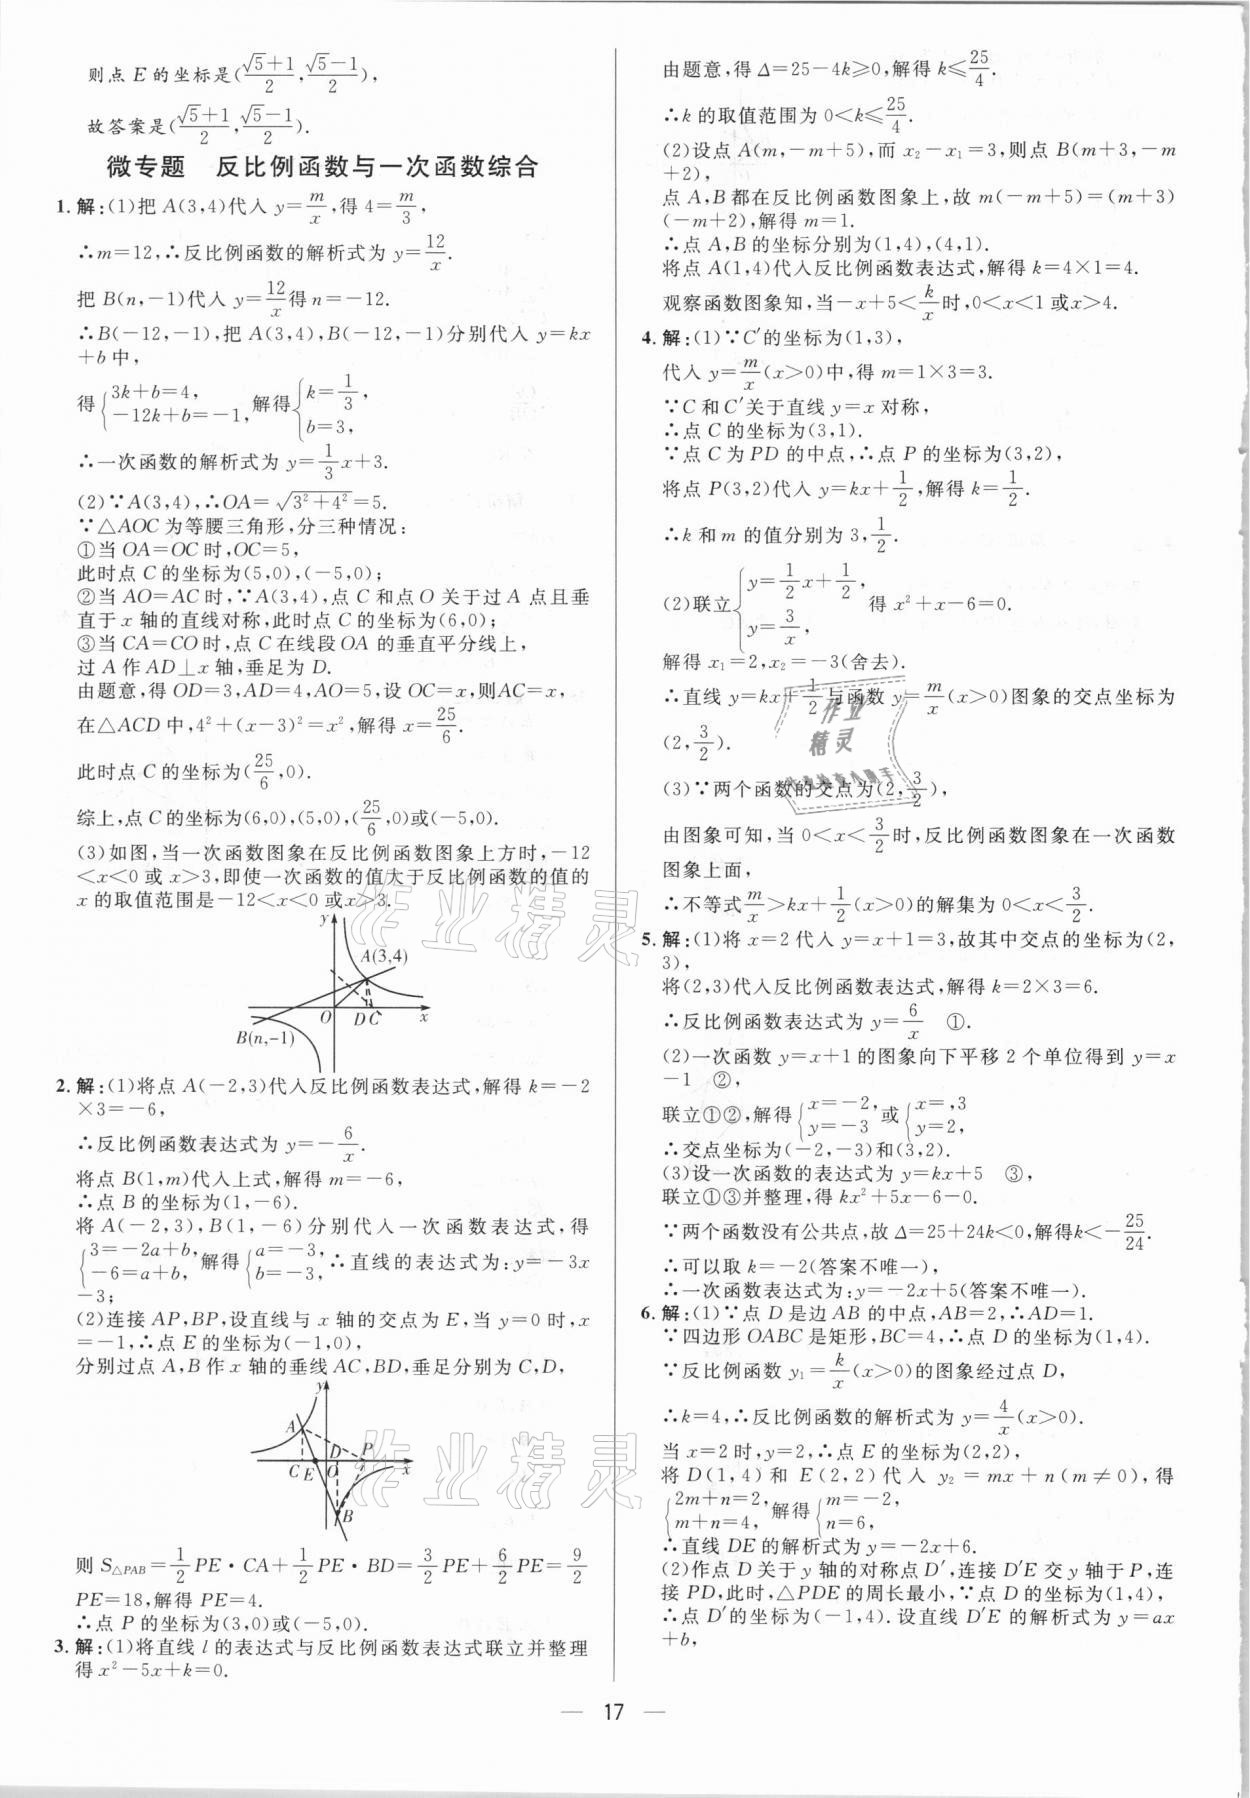 则点 E 的坐标是(\frac{\sqrt{5}+1}{2},\frac{\sqrt{5}-1}{2}),
故答案是(\frac{\sqrt{5}+1}{2},\frac{\sqrt{5}-1}{2}).
微专题 反比例函数与一次函数综合
1. 解:(1)把 A(3,4)代入 y=\frac{m}{x},得 4=\frac{m}{3},
∴m=12,∴反比例函数的解析式为 y=\frac{12}{x}.
把 B(n,-1)代入 y=\frac{12}{x}得 n=-12.
∴B(-12,-1),把 A(3,4),B(-12,-1)分别代入 y=kx
+b 中,
得{3k+b=4, -12k+b=-1, 解得{k=\frac{1}{3}, b=3,
∴一次函数的解析式为 y=\frac{1}{3}x+3.
(2)∵A(3,4),∴OA=\sqrt{3²+4²}=5.
∵△AOC 为等腰三角形,分三种情况:
①当 OA=OC 时,OC=5,
此时点 C 的坐标为(5,0),(-5,0);
②当 AO=AC 时,∵A(3,4),点 C 和点 O 关于过 A 点且垂
直于 x 轴的直线对称,此时点 C 的坐标为(6,0);
③当 CA=CO 时,点 C 在线段 OA 的垂直平分线上,
过 A 作 AD⊥x 轴,垂足为 D.
由题意,得 OD=3,AD=4,AO=5,设 OC=x,则AC=x,
在△ACD 中,4²+(x-3)²=x²,解得 x=\frac{25}{6}.
此时点 C 的坐标为(\frac{25}{6},0).
综上,点 C 的坐标为(6,0),(5,0),(\frac{25}{6},0)或(-5,0).
(3)如图,当一次函数图象在反比例函数图象上方时,-12
<x<0 或 x>3,即使一次函数的值大于反比例函数的值的
x 的取值范围是-12<x<0 或 x>3.
y
A(3,4)
O D C x
B(n,-1)
2. 解:(1)将点 A(-2,3)代入反比例函数表达式,解得 k=-2
×3=-6,
∴反比例函数表达式为 y=-\frac{6}{x}.
将点 B(1,m)代入上式,解得 m=-6,
∴点 B 的坐标为(1,-6).
将 A(-2,3),B(1,-6)分别代入一次函数表达式,得
{3=-2a+b, -6=a+b, 解得{a=-3, b=-3, ∴直线的表达式为:y=-3x
-3;
(2)连接 AP,BP,设直线与 x 轴的交点为 E,当 y=0 时,x
=-1,∴点 E 的坐标为(-1,0),
分别过点 A,B 作 x 轴的垂线 AC,BD,垂足分别为 C,D,
y
A
D P
C E O x
B
则 S△PAB=\frac{1}{2}PE·CA+\frac{1}{2}PE·BD=\frac{3}{2}PE+\frac{6}{2}PE=\frac{9}{2}
PE=18,解得 PE=4.
∴点 P 的坐标为(3,0)或(-5,0).
3. 解:(1)将直线 l 的表达式与反比例函数表达式联立并整理
得 x²-5x+k=0.
由题意,得 Δ=25-4k≥0,解得 k≤\frac{25}{4}.
∴k 的取值范围为 0<k≤\frac{25}{4}.
(2)设点 A(m,-m+5),而 x₂-x₁=3,则点 B(m+3,-m
+2),
点 A,B 都在反比例函数图象上,故 m(-m+5)=(m+3)
(-m+2),解得 m=1.
∴点 A,B 的坐标分别为(1,4),(4,1).
将点 A(1,4)代入反比例函数表达式,解得 k=4×1=4.
观察函数图象知,当-x+5<\frac{k}{x}时,0<x<1 或x>4.
4. 解:(1)∵C′的坐标为(1,3),
代入 y=\frac{m}{x}(x>0)中,得 m=1×3=3.
∵C 和 C′关于直线 y=x 对称,
∴点 C 的坐标为(3,1).
∵点 C 为 PD 的中点,∴点 P 的坐标为(3,2),
将点 P(3,2)代入 y=kx+\frac{1}{2},解得 k=\frac{1}{2}.
∴k 和 m 的值分别为 3,\frac{1}{2}.
(2)联立{y=\frac{1}{2}x+\frac{1}{2}, y=\frac{3}{x}, 得 x²+x-6=0.
解得 x₁=2,x₂=-3(舍去).
∴直线 y=kx+\frac{1}{2}与函数 y=\frac{m}{x}(x>0)图象的交点坐标为
(2,\frac{3}{2}).
(3)∵两个函数的交点为(2,\frac{3}{2}),
由图象可知,当 0<x<\frac{3}{2}时,反比例函数图象在一次函数
图象上面,
∴不等式\frac{m}{x}>kx+\frac{1}{2}(x>0)的解集为 0<x<\frac{3}{2}.
5. 解:(1)将 x=2 代入 y=x+1=3,故其中交点的坐标为(2,
3),
将(2,3)代入反比例函数表达式,解得 k=2×3=6.
∴反比例函数表达式为 y=\frac{6}{x} ①.
(2)一次函数 y=x+1 的图象向下平移 2 个单位得到 y=x
-1 ②,
联立①②,解得{x=-2, y=-3 或{x=,3 y=2,
∴交点坐标为(-2,-3)和(3,2).
(3)设一次函数的表达式为 y=kx+5 ③,
联立①③并整理,得 kx²+5x-6-0.
∵两个函数没有公共点,故 Δ=25+24k<0,解得k<-\frac{25}{24}.
∴可以取 k=-2(答案不唯一),
∴一次函数表达式为:y=-2x+5(答案不唯一).
6. 解:(1)∵点 D 是边 AB 的中点,AB=2,∴AD=1.
∵四边形 OABC 是矩形,BC=4,∴点 D 的坐标为(1,4).
∵反比例函数 y₁=\frac{k}{x}(x>0)的图象经过点 D,
∴k=4,∴反比例函数的解析式为 y=\frac{4}{x}(x>0).
当 x=2 时,y=2,∴点 E 的坐标为(2,2),
将 D(1,4)和 E(2,2)代入 y₂=mx+n(m≠0),得
{2m+n=2, m+n=4, 解得{m=-2, n=6,
∴直线 DE 的解析式为 y=-2x+6.
(2)作点 D 关于 y 轴的对称点 D′,连接 D′E 交 y 轴于 P,连
接 PD,此时,△PDE 的周长最小,∵点 D 的坐标为(1,4),
∴点 D′的坐标为(-1,4).设直线 D′E 的解析式为 y=ax
+b,
— 17 —
作业精灵
作业精灵
作业
精灵